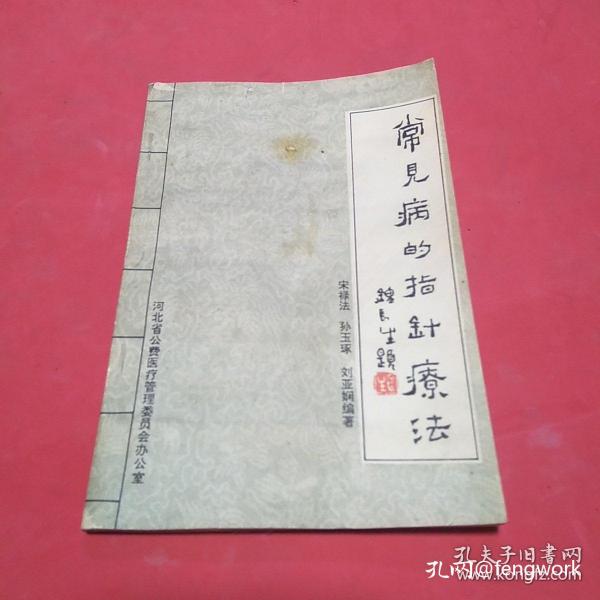 常見病的指針療法
長生題
宋禄法 孙玉琢 刘亚娴编著
河北省公费医疗管理委员会办公室
孔夫子旧書网
www.kongfz.com
孔网@fengwork